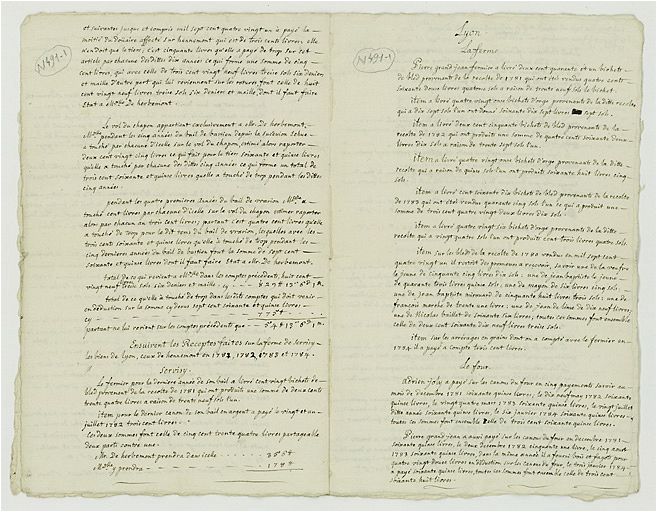 N491-1
et suivantes jusque et compris mil sept cent quatre vingt un a payé la
moitié du douaire affecté sur hennemont qui est de trois cents livres, elle
n'en doit que le tiers, c'est cinquante livres qu'elle a payé de trop sur cet
article par chacune des dittes dix années ce qui forme une somme de cinq
cent livres, qui avec celle de trois cent vingt neuf livres treize sols six deniers
et maille d'autre part qui lui reviennent sur les
cent vingt neuf livres treize sols six deniers et maille, dont il faut faire
état a de herbemont.
Le vol du chapon appartient exclusivement a Mr. De herbemont,
pendant les cinq années du bail de
a touché par chacune d'icelle sur le vol du chapon, estimé alors rapporter
deux cent vingt cinq livres ce qui fait pour le tiers soixante et quinze livres
qu'elle a touché par chacune des dittes cinq années ce qui forme un total de
trois cent soixante et quinze livres qu'elle a touché de trop pendant les dittes
cinq années.
pendant les quatre premieres années du bail de
touché cent livres par chacune d'icelle sur le vol du chapon estimé rapporter
alors par chacun an trois cent livres, partant c'est quatre cent livres qu'elle
a touché de trop pour le dit tems du bail de lesquelles avec les
trois cents soixante et quinze livres qu'elle a touché de trop pendant les
cinq dernieres années du bail font la somme de sept cent
soixante et quinze livres dont il faut faire état a Mr. De herbemont.
total de ce qui revient a dans les comptes précédents, huit cent
vingt neuf livres six deniers et maille. cy 829
total de ce qu'elle a touché de trop dans les dits comptes qui doit venir
en déduction sur la somme cy dessus sept cent soixante et quinze livres
cy 775
partant ne lui revient sur les comptes précédents que 54
Ensuivent les Receptes faites sur la ferme de Servisy
les biens de Lyon, ceux de hennemont en 1781, 1782, 1783 et 1784.
Servisy.
Le fermier pour la derniere année de son bail a livré cent vingt bichets de
bled provenant de la recolte de 1781 qui ont produits une somme de deux cents
trente quatre livres a raison de trente neuf sols l'un.
item pour le dernier canon de son bail en argent a payé le vingt et un
juillet 1782 trois cent livres.
Les deux sommes font celle de cinq cent trente quatre livres partageable
deux parts contre une.
Mr. De herbemont prendra dans icelle 356
y prendra 178
Lyon
La ferme
N491-1
Pierre grand jean fermier a livré deux cent quarante et un bichets
de bled provenant de la recolte de 1781 qui ont été vendus quatre cent
soixante douze livres quatorze sols a raison de trente neuf sols le bichet.
item a livré quatre vingt onze bichets d'orge provenants de la ditte recolte
qui a dix sept sols l'un ont donné soixante dix sept livres sept sols.
item a livré deux cent cinquante bichets de bled provenants de la
recolte de 1782 qui ont produits une somme de quatre cents soixante deux
livres dix sols a raison de trente sept sols l'un.
item a livré quatre vingt onze bichets d'orge provenants de la ditte
recolte qui a quinze sols l'un ont produits soixante huit livres cinq
sols.
item a livré cent soixante dix bichets de bled provenants de la recolte
de 1783 qui ont été vendus quarante cinq sols l'un ce qui a produit une
somme de trois cent quatre vingt deux livres dix sols.
item a livré quatre vingt six bichets d'orge provenants de la ditte
recolte qui a vingt quatre sols l'un ont produits cent trois livres quatre sols.
item sur les bleds de la recolte de 1780 vendus en mil sept cent
quatre vingt un il restoit des sommes a recevoir, savoir une de la veuve
le jeune de cinquante cinq livres dix sols; une de jean baptiste le jeune
de quarante trois livres quinze sols; une de de six livres cinq sols;
une de jean baptiste de cinquante huit livres trois sols; une de
françois de trente livres; une de jean de dix neuf livres;
une de Nicolas baillot de soixante livres dix sols, toutes ces sommes font ensemble
celle de deux cent soixante dix neuf livres treize sols.
item sur les arrerages en grain dont on a compté avec le fermier en
1784. il a payé a compte cent livres.
Le four
adrien joly a payé sur les canons du four en cinq payements savoir au
mois de decembre 1781 soixante quinze livres, le dix neuf may 1782 soixante
quinze livres, le vingt quatre mars 1783 soixante quinze livres, le vingt juillet
ditte année soixante quinze livres, le six janvier 1784 soixante quinze livres
toutes ces sommes font ensemble celle de trois cent soixante quinze livres.
Pierre grand jean a aussi payé sur les canons du four en decembre 1781
soixante quinze livres, le cinq decembre 1782 cinquante une livre, le cinq aout
1783 soixante quinze livres, dans la même année il a fourni bois et fagots pour
quatre vingt douze livres en déduction sur les canons du four, le trois janvier 1784
a payé soixante quinze livres toutes ces sommes font ensemble celle de trois cent
soixante huit livres.